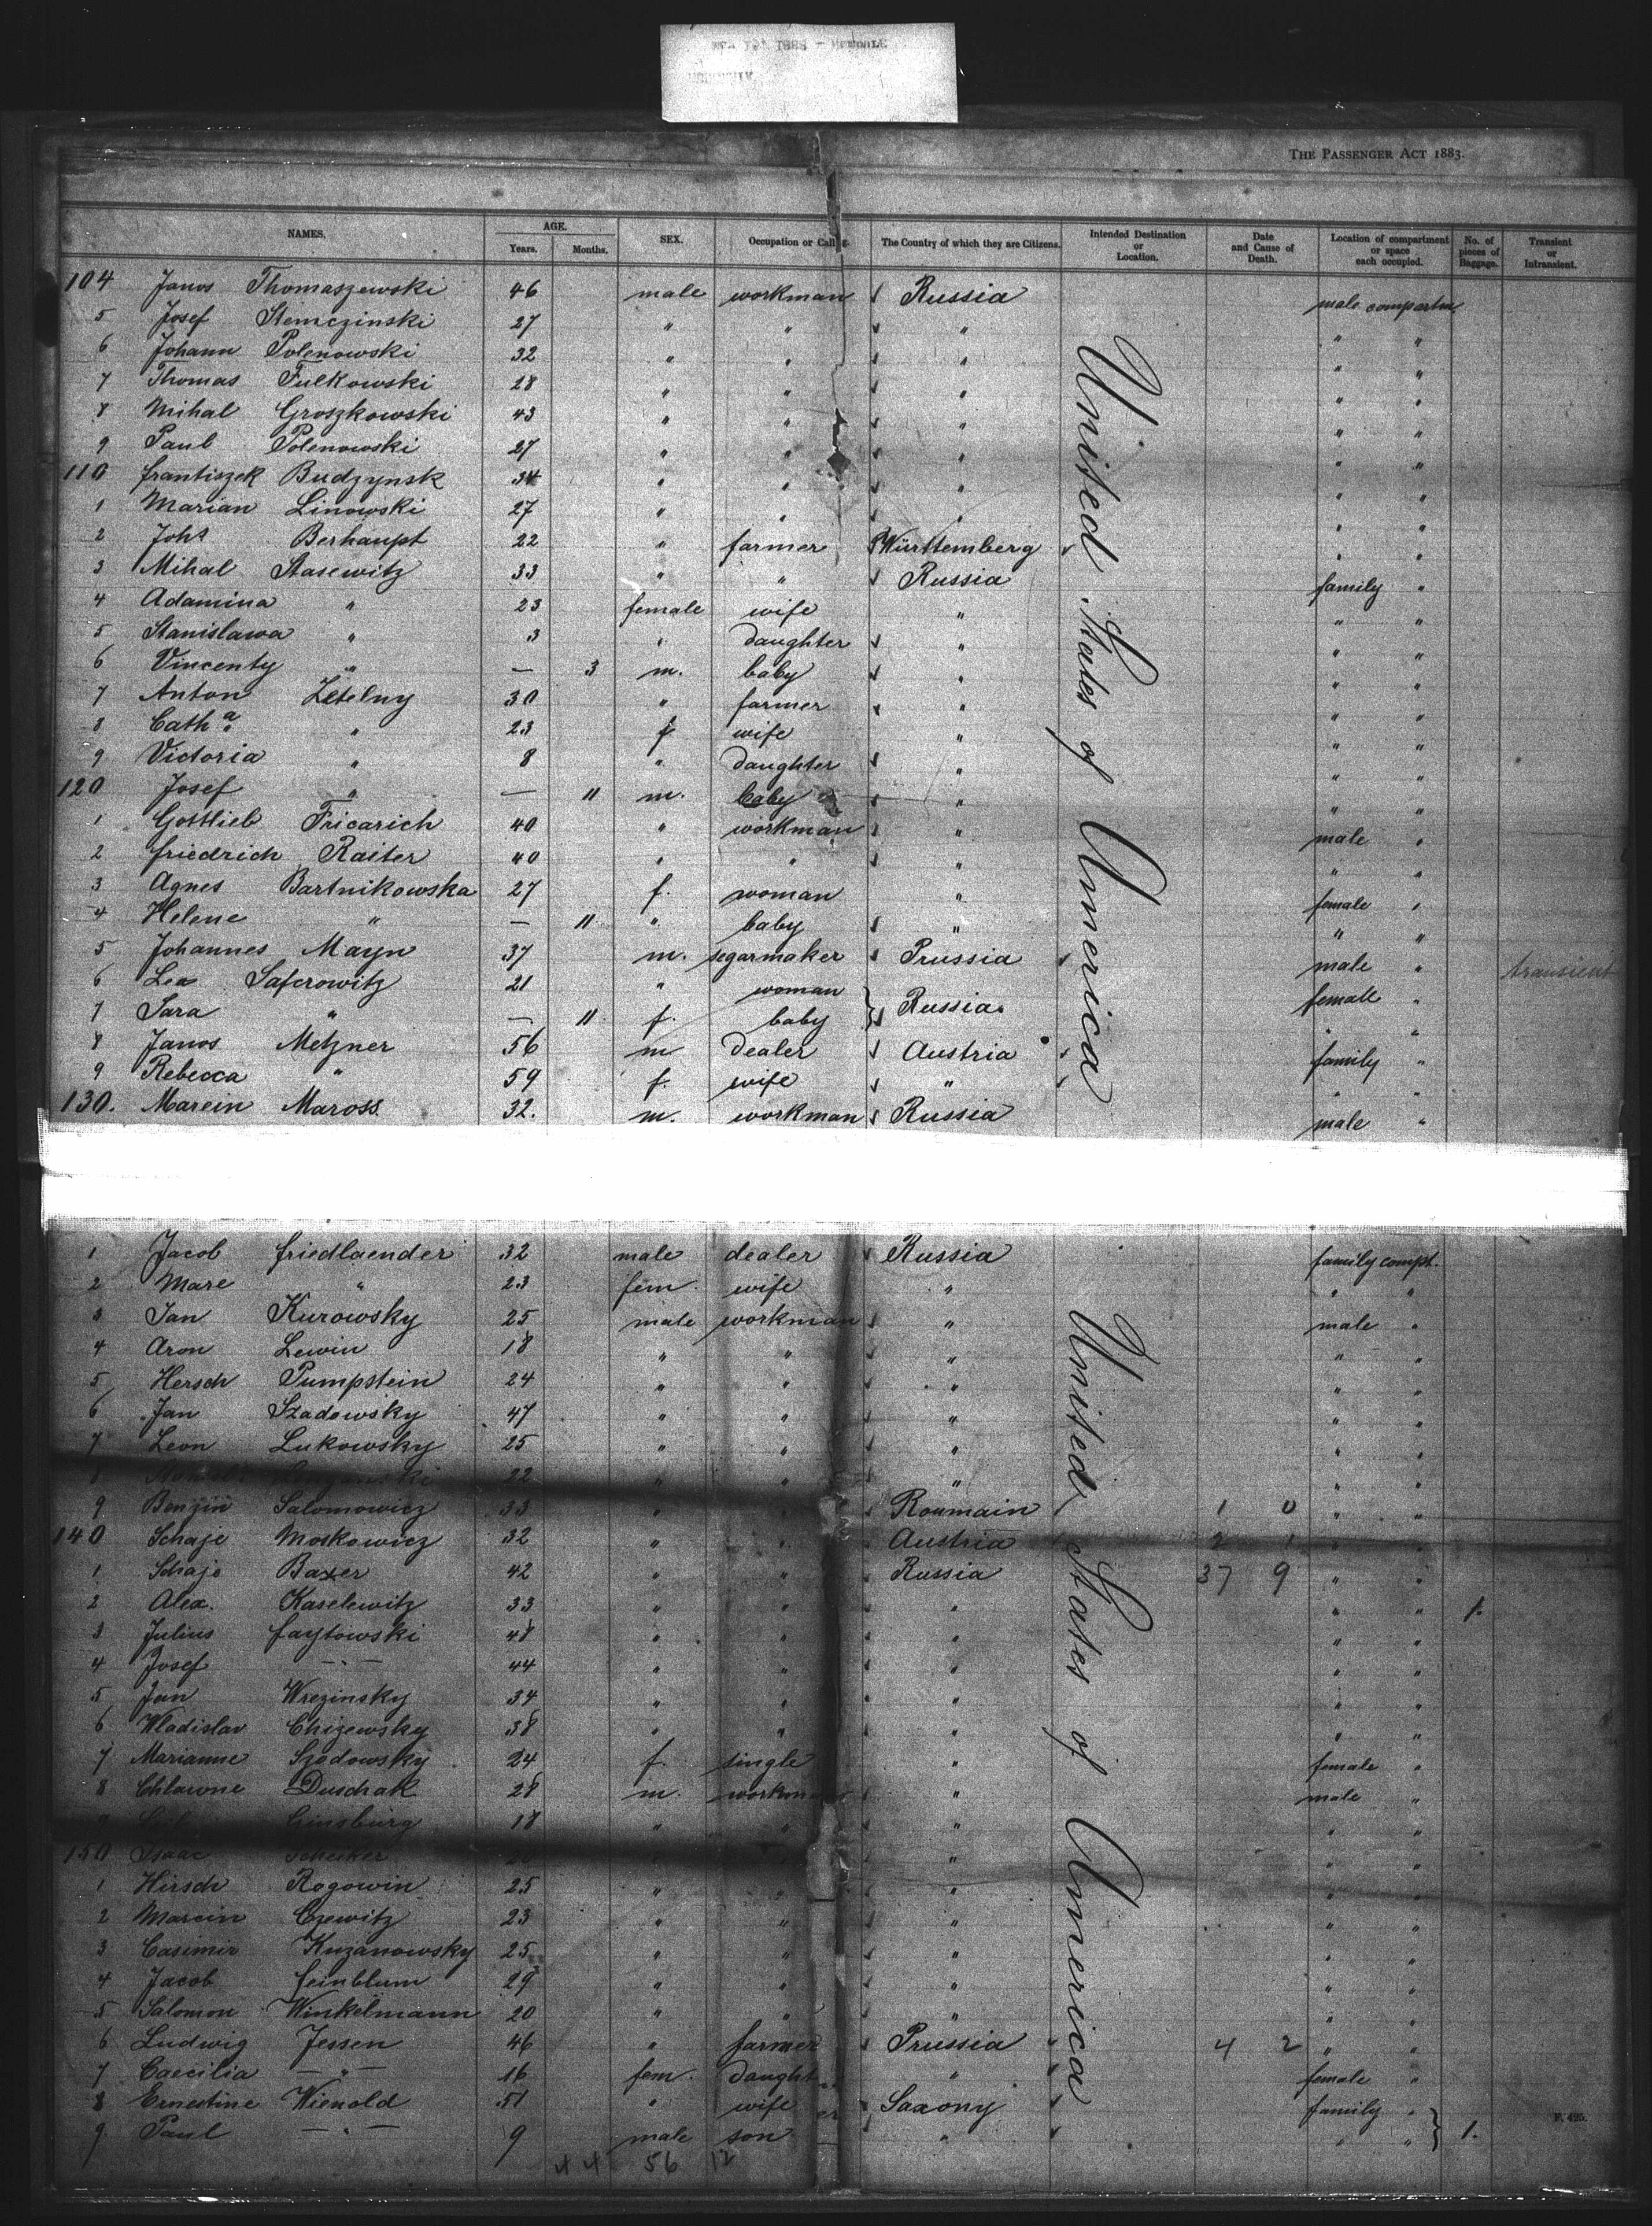 THE PASSENGER ACT 1883.
NAMES. AGE. Years. Months. SEX. Occupation or Calling. The Country of which they are Citizens. Intended Destination or Location. Date and Cause of Death. Location of compartment or space each occupied. No. of pieces of Baggage. Transient or Intransient.
United States of America
104 Janos Thomaszewski 46 male workman Russia male compartm
5 Josef Stemczinski 27 " " " " "
6 Johann Polenowski 32 " " " " "
7 Thomas Fulkowski 28 " " " " "
8 Mihal Groszkowski 43 " " " " "
9 Paul Polenowski 27 " " " " "
110 Frantiszek Budzynsk 34 " " " " "
1 Marian Linowski 27 " " " " "
2 Johs Berhaupt 22 " farmer Württemberg " "
3 Mihal Stasewitz 33 " " Russia family "
4 Adamina " 23 female wife " " "
5 Stanislawa " 3 " daughter " " "
6 Vincenty " — 3 m. baby " " "
7 Anton Zetelny 30 " farmer " " "
8 Cath a " 23 f wife " " "
9 Victoria " 8 " daughter " " "
120 Josef " — 11 m. baby " " "
1 Gottlieb Fricarich 40 " workman " male "
2 Friedrich Raiter 40 " " " " "
3 Agnes Bartnikowska 27 f. woman " female "
4 Helene " — 11 " baby " " "
5 Johannes Mayn 37 m. segarmaker Prussia male " transient
6 Lea Saferowitz 21 " woman } Russia female "
7 Sara " — 11 f. baby " "
8 Janos Metzner 56 m Dealer Austria family "
9 Rebecca " 59 f. wife " " "
130. Marcin Maross 32. m. workman Russia male "
United States of America
1 Jacob Friedlaender 32 male dealer Russia family compt.
2 Mare " 23 fem. wife " " "
3 Jan Kurowsky 25 male workman " male "
4 Aron Lewin 18 " " " " "
5 Hersch Pumpstein 24 " " " " "
6 Jan Szadowsky 47 " " " " "
7 Leon Lukowsky 25 " " " " "
8 22 " " " " "
9 Benzin Salomowicz 33 " " Roumain 1 0 " "
140 Schaje Moskowicz 32 " " Austria 2 1 " "
1 Schaje Baxer 42 " " Russia 37 9 " "
2 Alex. Kaselewitz 33 " " " " " 1.
3 Julius Faytowski 48 " " " " "
4 Josef — " — 44 " " " " "
5 Jan Wrezinsky 34 " " " " "
6 Wladislav Chizewsky 38 " " " " "
7 Marianne Szodowsky 24 f. single " female "
8 Chlawne Duschak 28 m. workman " male "
Ginsburg 18 " " " " "
150 Isaac " " "
1 Hirsch Rogowin 25 " " " " "
2 Marcin Czewitz 23 " " " " "
3 Casimir Kuzanowsky 25 " " " " "
4 Jacob Feinblum 29 " " " " "
5 Salomon Winkelmann 20 " " " " "
6 Ludwig Jessen 46 " farmer Prussia 4 2 " "
7 Caecilia — " — 16 fem. Daught " female "
8 Ernestine Wienold 51 " wife Saxony family "
9 Paul — " — 9 male son " " " } 1.
44 56 12
F. 425.